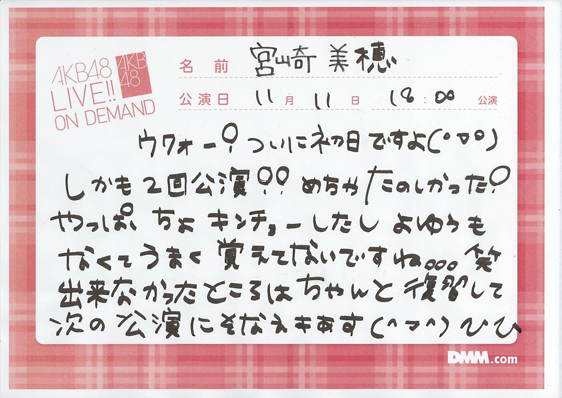 AKB48
LIVE!!
ON DEMAND
AKB
48
名前 宮崎美穂
公演日 11月11日 18:00 公演
ウワォー!ついに初日ですよ(°▽°)
しかも2回公演!!めちゃたのしかった!
やっぱ、ちょキンチョーしたしよゆうも
なくてうまく覚えてないですね...笑
出来なかったところはちゃんと復習して
次の公演にそなえまあす(^ー^)ひひ
DMM.com